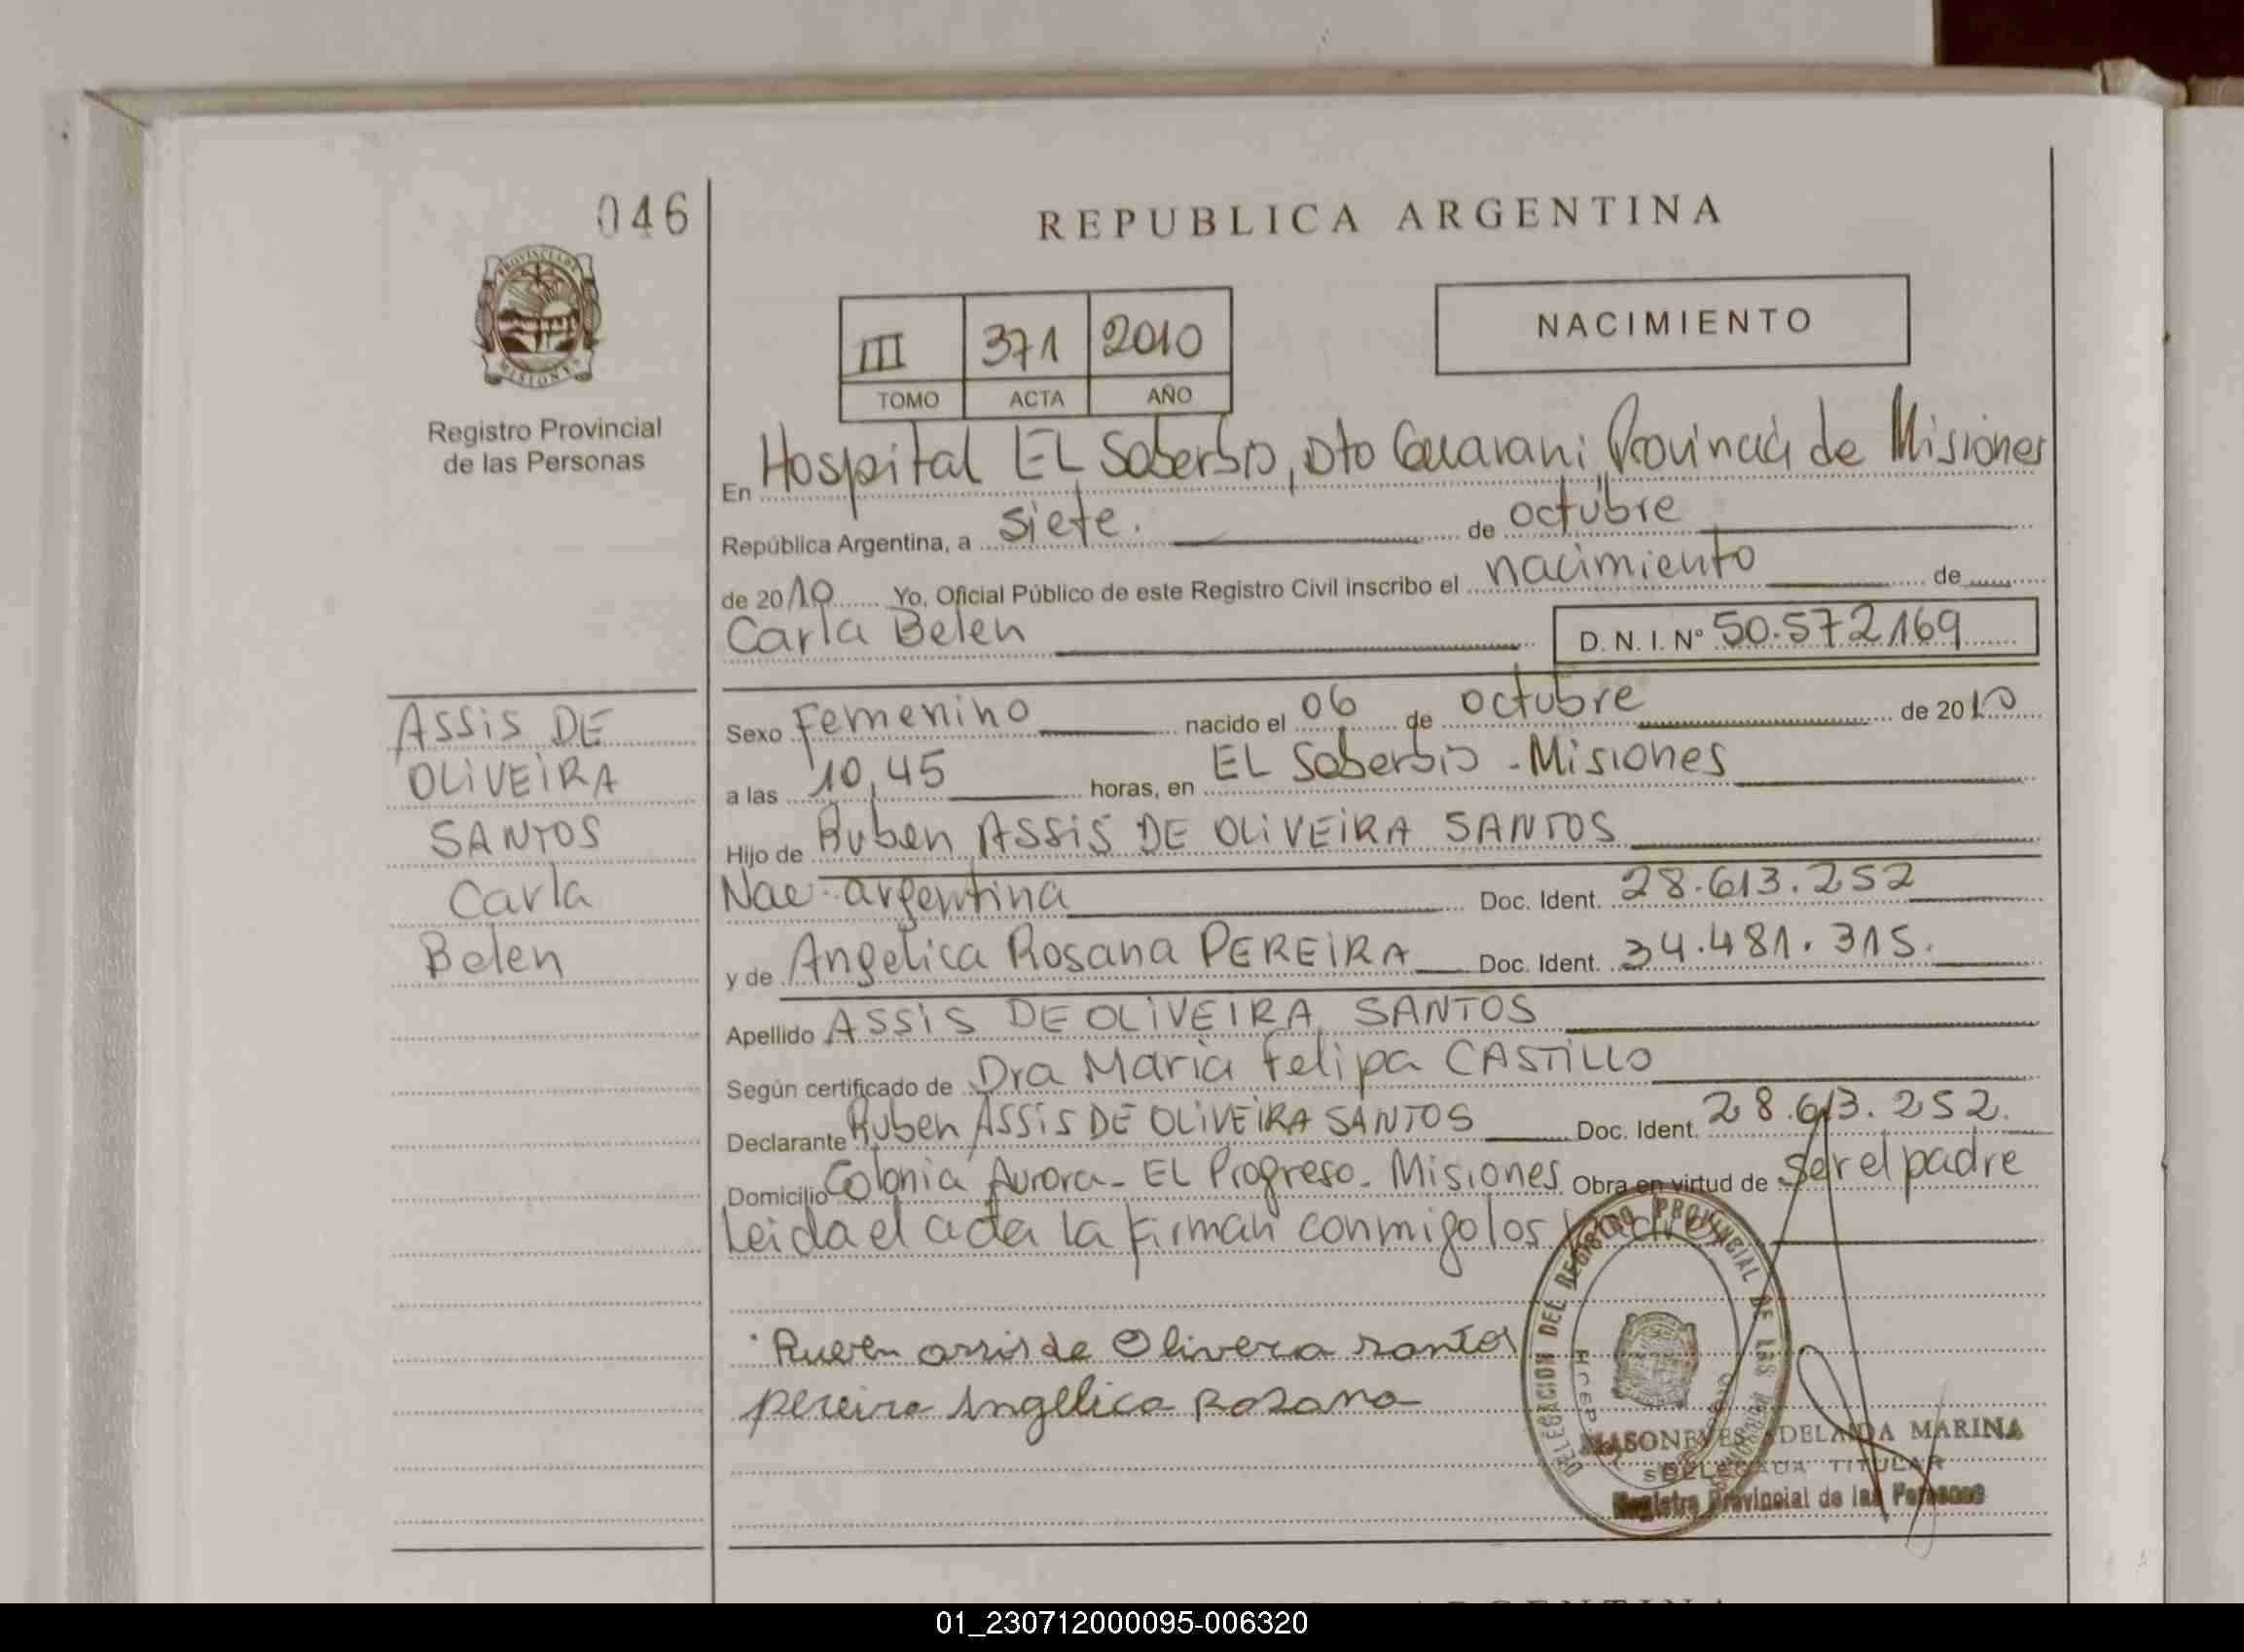 046
REPUBLICA ARGENTINA
PROVINCIA DE
MISIONES
Registro Provincial
de las Personas
III 371 2010
TOMO ACTA AÑO
NACIMIENTO
En Hospital EL Soberbio, Dto Guarani Provincia de Misiones
República Argentina, a siete. de octubre
de 2010 Yo, Oficial Público de este Registro Civil inscribo el nacimiento de
Carla Belen D. N. I. Nº 50.572169
ASSiS DE
OLiVEiRA
SANTOS
Carla
Belen
Sexo Femenino nacido el 06 de octubre de 2010
a las 10,45 horas, en EL Soberbio - Misiones
Hijo de Ruben ASSiS DE OLiVEiRA SANTOS
Nac. argentina Doc. Ident. 28.613.252
y de Angelica Rosana PEREiRA Doc. Ident. 34.481.315.
Apellido ASSiS DE OLiVEIRA SANTOS
Según certificado de Dra Maria Felipa CASTiLLO
Declarante Ruben ASSiS DE OLiVEiRA SANTOS Doc. Ident. 28.613.252.
Domicilio Colonia Aurora - EL Progreso - Misiones Obra en virtud de ser el padre
Leida el acta la firman conmigo los
DELEGACION DEL REGISTRO PROVINCIAL DE LAS
Rueven assis de Olivera santos
pereira Angelica Rosana
ADELAIDA MARINA
DELEGADA TITULAR
Registro Provincial de las Personas
01_230712000095-006320